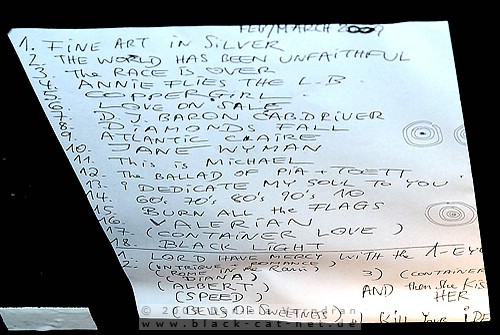 FEB/MARCH 2009
1. FINE ART in SILVER
2. THE WORLD HAS BEEN UNFAITHFUL
3. The RACE IS OVER
4. ANNIE FLIES THE L.B.
5. COPPERGIRL
6. LOVE ON SALE
7. D.J. BARON CABDRIVER
8. DIAMONDS FALL
9. ATLANTIC CLAIRE
10. JANE WYMAN
11. This is MICHAEL
12. The BALLAD OF PIA + TOETT
13. I DEDICATE MY SOUL TO YOU
14. 60's 70's 80's 90's 10
15. BURN ALL the FLAGS
16. VALERIAN
17. (CONTAINER LOVE)
18. BLACK LIGHT
1. LORD HAVE MERCY WITH the 1-EY
2. (INTRIGUE + ROMANCE)
(ROME IN the Rain)
(DIANA)
3) (CONTAINER
(ALBERT)
AND then She KIS
HER
(SPEED)
(BELLS OF SWEETNESS)
KILL YOUR IDE
www.black-cat-net.de